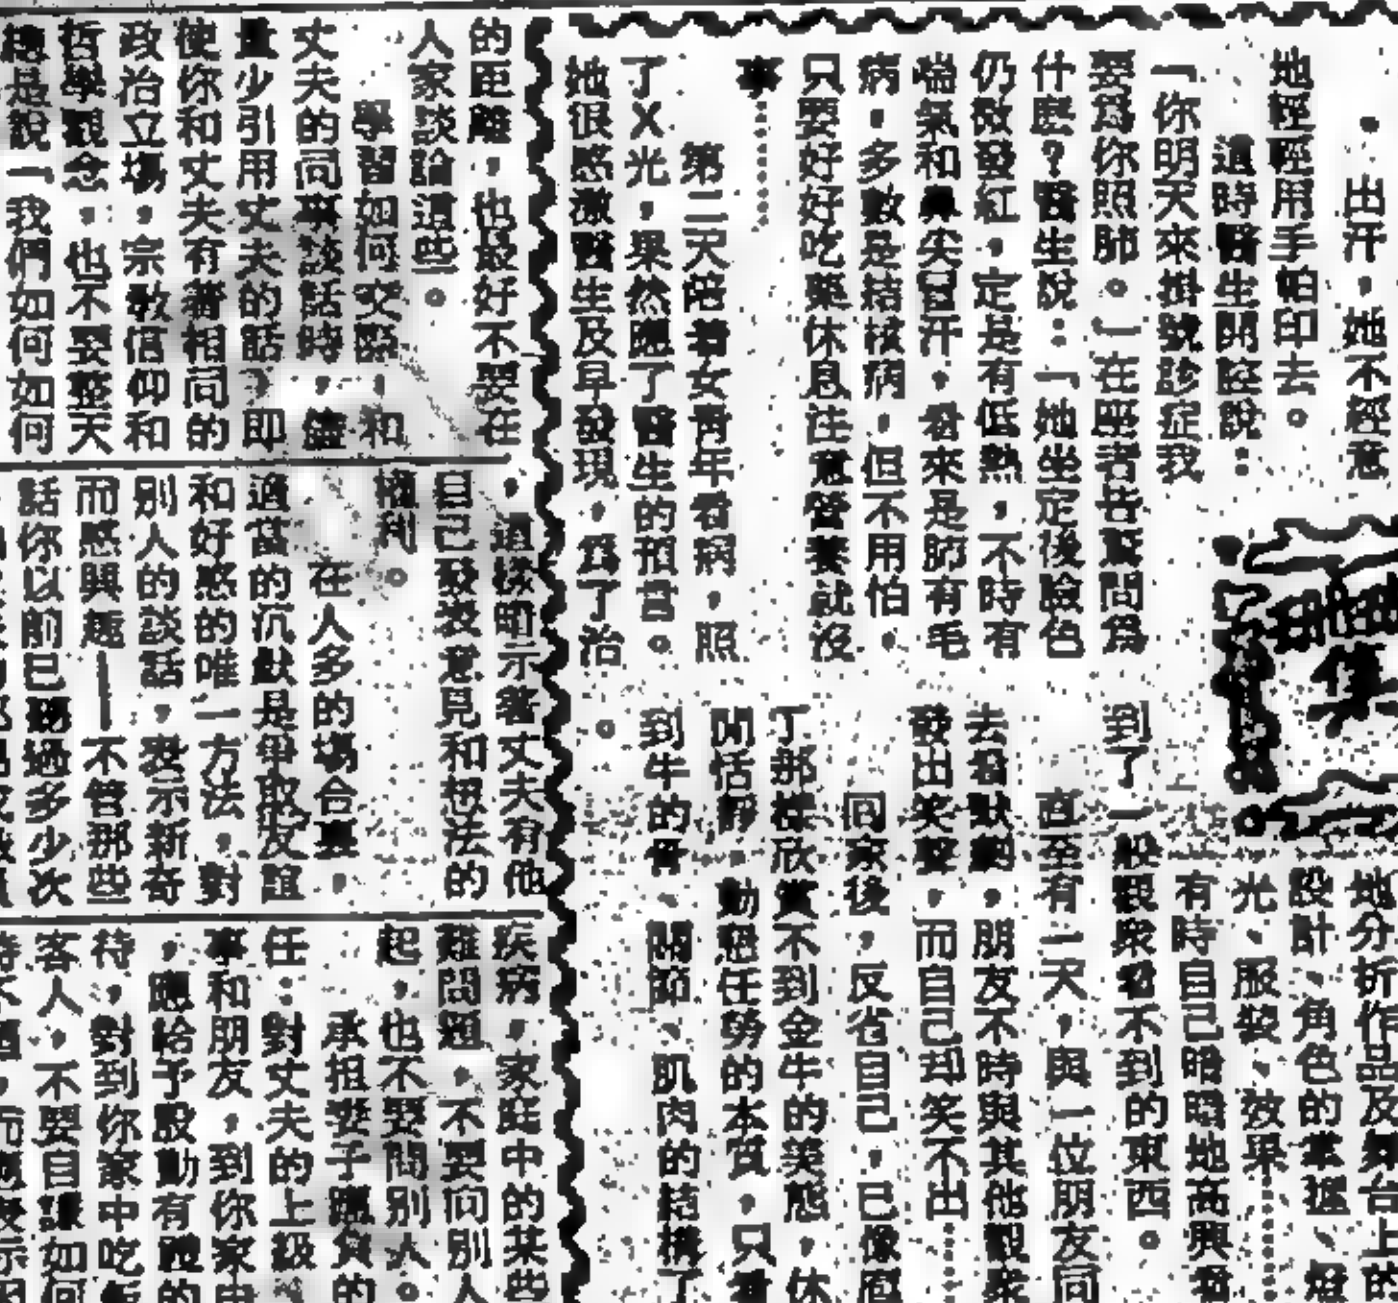 。出汗,她不經意
地輕輕用手帕印去。
這時醫生開腔說:
「你明天來掛號診症我
要爲你照肺。」在座者皆驚問爲
什麽?醫生說:「她坐定後臉色
仍微發紅,定是有低熱,不時有
喘氣和鼻尖冒汗,看來是肺有毛
病,多數是結核病,但不用怕,
只要好好吃藥休息注意營養就沒
事……
第二天陪着女青年看病,照
了X光,果然應了醫生的預言。
她很感激醫生及早發現,爲了治
。
集
地分析作品及舞台上的
設計、角色的掌握、燈
光、服裝、效果……
有時自己暗暗地高興看
到了一般觀衆看不到的東西。
直至有一天,與一位朋友同
去看默劇,朋友不時與其他觀衆
發出笑聲,而自己却笑不出……
回家後,反省自己,已像庖
丁那樣欣賞不到金牛的美態,休
閒恬靜,勤懇任勞的本質,只看
到牛的骨、關節、肌肉的結構了
的距離,也最好不要在
人家談論這些。
學習如何交際,和
丈夫的同事談話時,儘
量少引用丈夫的話,即
使你和丈夫有着相同的
政治立場,宗教信仰和
哲學觀念,也不要整天
總是說「我們如何如何
,這樣暗示著丈夫有他
自己發表意見和想法的
權利。
在人多的場合裏,
適當的沉默是爭取友誼
和好感的唯一方法,對
別人的談話,表示新奇
而感興趣——不管那些
話你以前已聽過多少次
疾病,家庭中的某些
難問題,不要向別人
起,也不要問別人。
承担妻子職責的
任:對丈夫的上級
事和朋友,到你家中
,應給予殷勤有禮的
待,對到你家中吃飯
客人,不要自謙如何